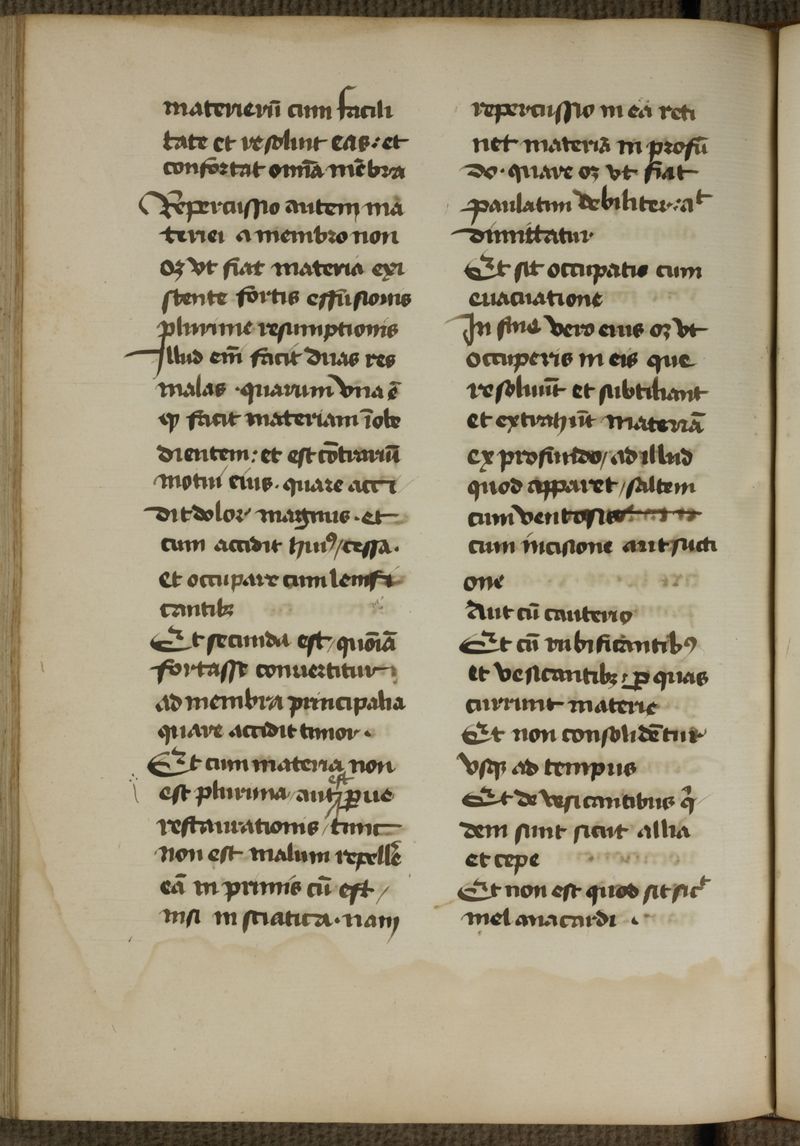 materierū cum facili
tate et resolunt eas: et
confortat omīa mēbra
Repercussio autem ma
teriei a membro non
oꝫ vt fiat materia exi
stente fortis effusionis
plurime resumptionis
Illud em̄ facit duas res
malas · quarum vna ē
ꝙ facit materiam īobe
dientem: et est cōtrariū
motui eius. quare acci
dit dolor magnus · et
cum accidit huiꝰ/cessa.
et occupare cum lenifi
cantibꝫ
Et secunda est/quoniā
fortasse conuertitur
ad membra principalia
quare accidit timor.
Et cum materia non
est plurima/aut est ꝑue
restaurationis/tunc
non est malum repellē
eā in primis cū est/
nisi in sciatica · nam
repercussio in ea reti
net materiā in profū
do · quare oꝫ vt fiat
paulatim debiliter: at
dimittatur
Et sit occupatio cum
euacuatione
In fine vero eius oꝫ vt
occuperis in eis que
resoluūt et subtiliant
et extrahūt materiā
ex profundo/ad illud
quod apparet/saltem
cum ventosis
cum incisione aut sucti
one
Aut cū cauterio
Et cū rubificantibꝰ
et vesicantibꝫ: ꝑ quas
currunt materie
Et non consolidētur
vsqꝫ ad tempus
Et de vesicantibus q̄
dem sunt sicut allia
et cepe
Et non est quod sit sic̄t
mel anacardi .